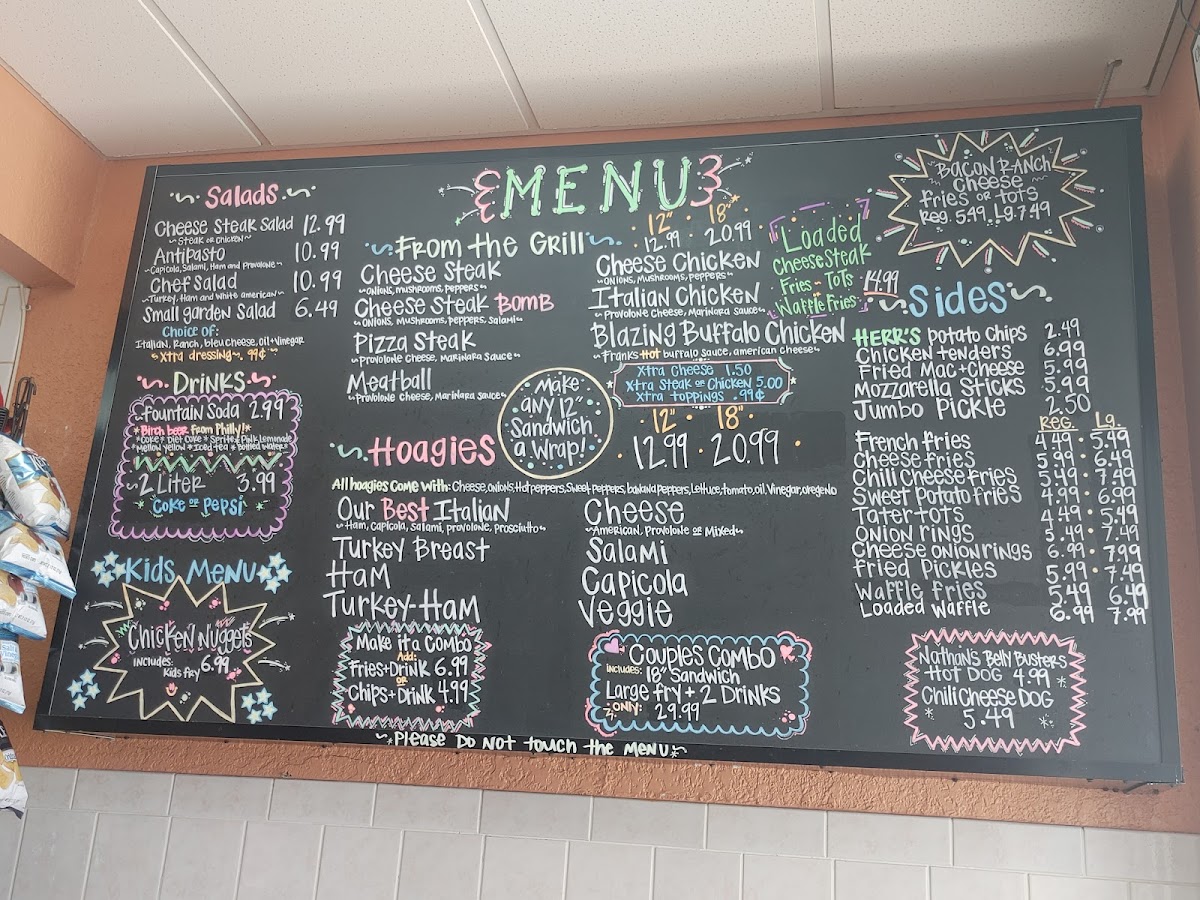 MENU
Salads
Cheese Steak Salad 12.99
~Steak or Chicken~
Antipasto 10.99
~Capicola, Salami, Ham and Provolone~
Chef Salad 10.99
~Turkey, Ham and White American~
Small garden Salad 6.49
Choice of:
Italian, Ranch, bleu cheese, oil+Vinegar
*Xtra dressing~ .99¢*
Drinks
Fountain Soda 2.99
*Birch beer from Philly!*
*Coke* Diet Coke* Sprite* Pink Lemonade
*Mellow Yellow* Iced tea* Bottled Water*
~2 Liter 3.99
Coke or Pepsi
Kids Menu
Chicken Nuggets
Includes: 6.99
Kids fry
From the Grill
12" 18"
12.99 20.99
Cheese Steak
~Onions, Mushrooms, peppers~
Cheese Steak Bomb
~Onions, Mushrooms, peppers, Salami~
Pizza Steak
~Provolone Cheese, Marinara Sauce~
Meatball
~Provolone Cheese, Marinara Sauce~
Cheese Chicken
~Onions, Mushrooms, Peppers~
Italian Chicken
~Provolone Cheese, Marinara Sauce~
Blazing Buffalo Chicken
~Franks Hot buffalo sauce, american cheese~
Xtra Cheese 1.50
Xtra Steak or Chicken 5.00
Xtra toppings .99¢
Loaded
Cheese Steak
Fries - Tots
Waffle Fries
14.99
Make
any 12"
Sandwich
a Wrap!
Hoagies
12" 18"
12.99 20.99
All hoagies Come With: Cheese, onions, Hot peppers, Sweet peppers, banana peppers, Lettuce, tomato, oil, Vinegar, oregeno
Our Best Italian
~Ham, Capicola, Salami, Provolone, Prosciutto~
Turkey Breast
Ham
Turkey-Ham
Cheese
~American, Provolone or Mixed~
Salami
Capicola
Veggie
Make it a Combo
Add:
Fries+Drink 6.99
or
Chips+Drink 4.99
Couples Combo
includes: 18" Sandwich
Large fry + 2 Drinks
only: 29.99
~*Please Do Not touch the Menu*~
Bacon Ranch
Cheese
fries or tots
Reg. 5.49 . Lg. 7.49
Sides
HERR'S Potato Chips 2.49
Chicken tenders 6.99
Fried Mac+Cheese 5.99
Mozzarella Sticks 5.99
Jumbo Pickle 2.50
Reg. Lg.
French fries 4.49 · 5.49
Cheese fries 5.99 · 6.49
Chili Cheese fries 5.49 · 7.49
Sweet Potato fries 4.99 · 6.99
Tater tots 4.49 · 5.49
Onion rings 5.49 · 7.49
Cheese onion rings 6.99 · 7.99
Fried Pickles 5.99 · 7.49
Waffle fries 5.49 6.49
Loaded Waffle 6.99 7.99
Nathan's Belly Busters
Hot Dog 4.99
Chili Cheese Dog
5.49